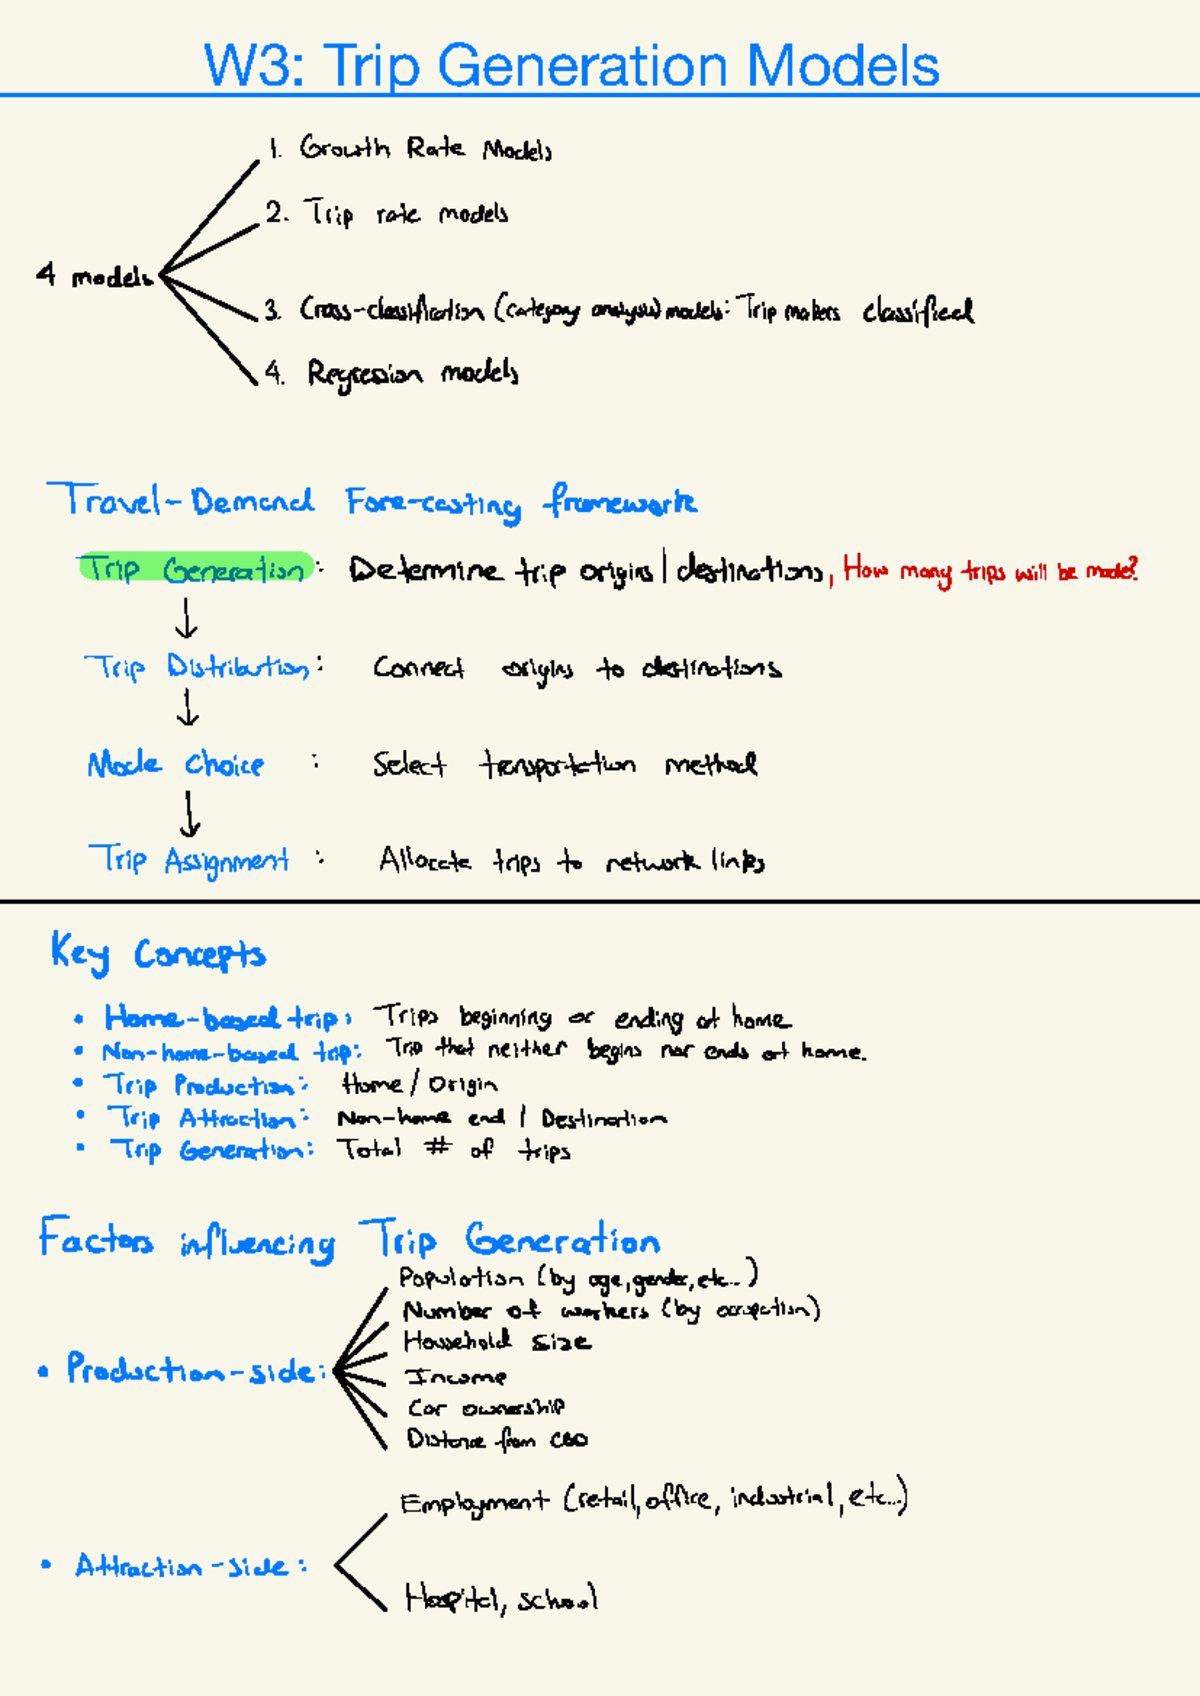 W3: Trip Generation Models
1. Growth Rate Models
2. Trip rate models
4 models
3. Cross-classification (category analysis) models: Trip makers classified
4. Regression models
Travel-Demand Fore-casting framework
Trip Generation: Determine trip origins | destinations, How many trips will be made?
Trip Distribution: Connect origins to destinations
Mode Choice : Select transportation method
Trip Assignment : Allocate trips to network links
Key Concepts
• Home-based trip: Trips beginning or ending at home
• Non-home-based trip: Trip that neither begins nor ends at home.
• Trip Production: Home / Origin
• Trip Attraction: Non-home end / Destination
• Trip Generation: Total # of trips
Factors influencing Trip Generation
Population (by age, gender, etc...)
Number of workers (by occupation)
Household size
• Production-side:
Income
Car ownership
Distance from CBD
Employment (retail, office, industrial, etc...)
• Attraction-side:
Hospital, school